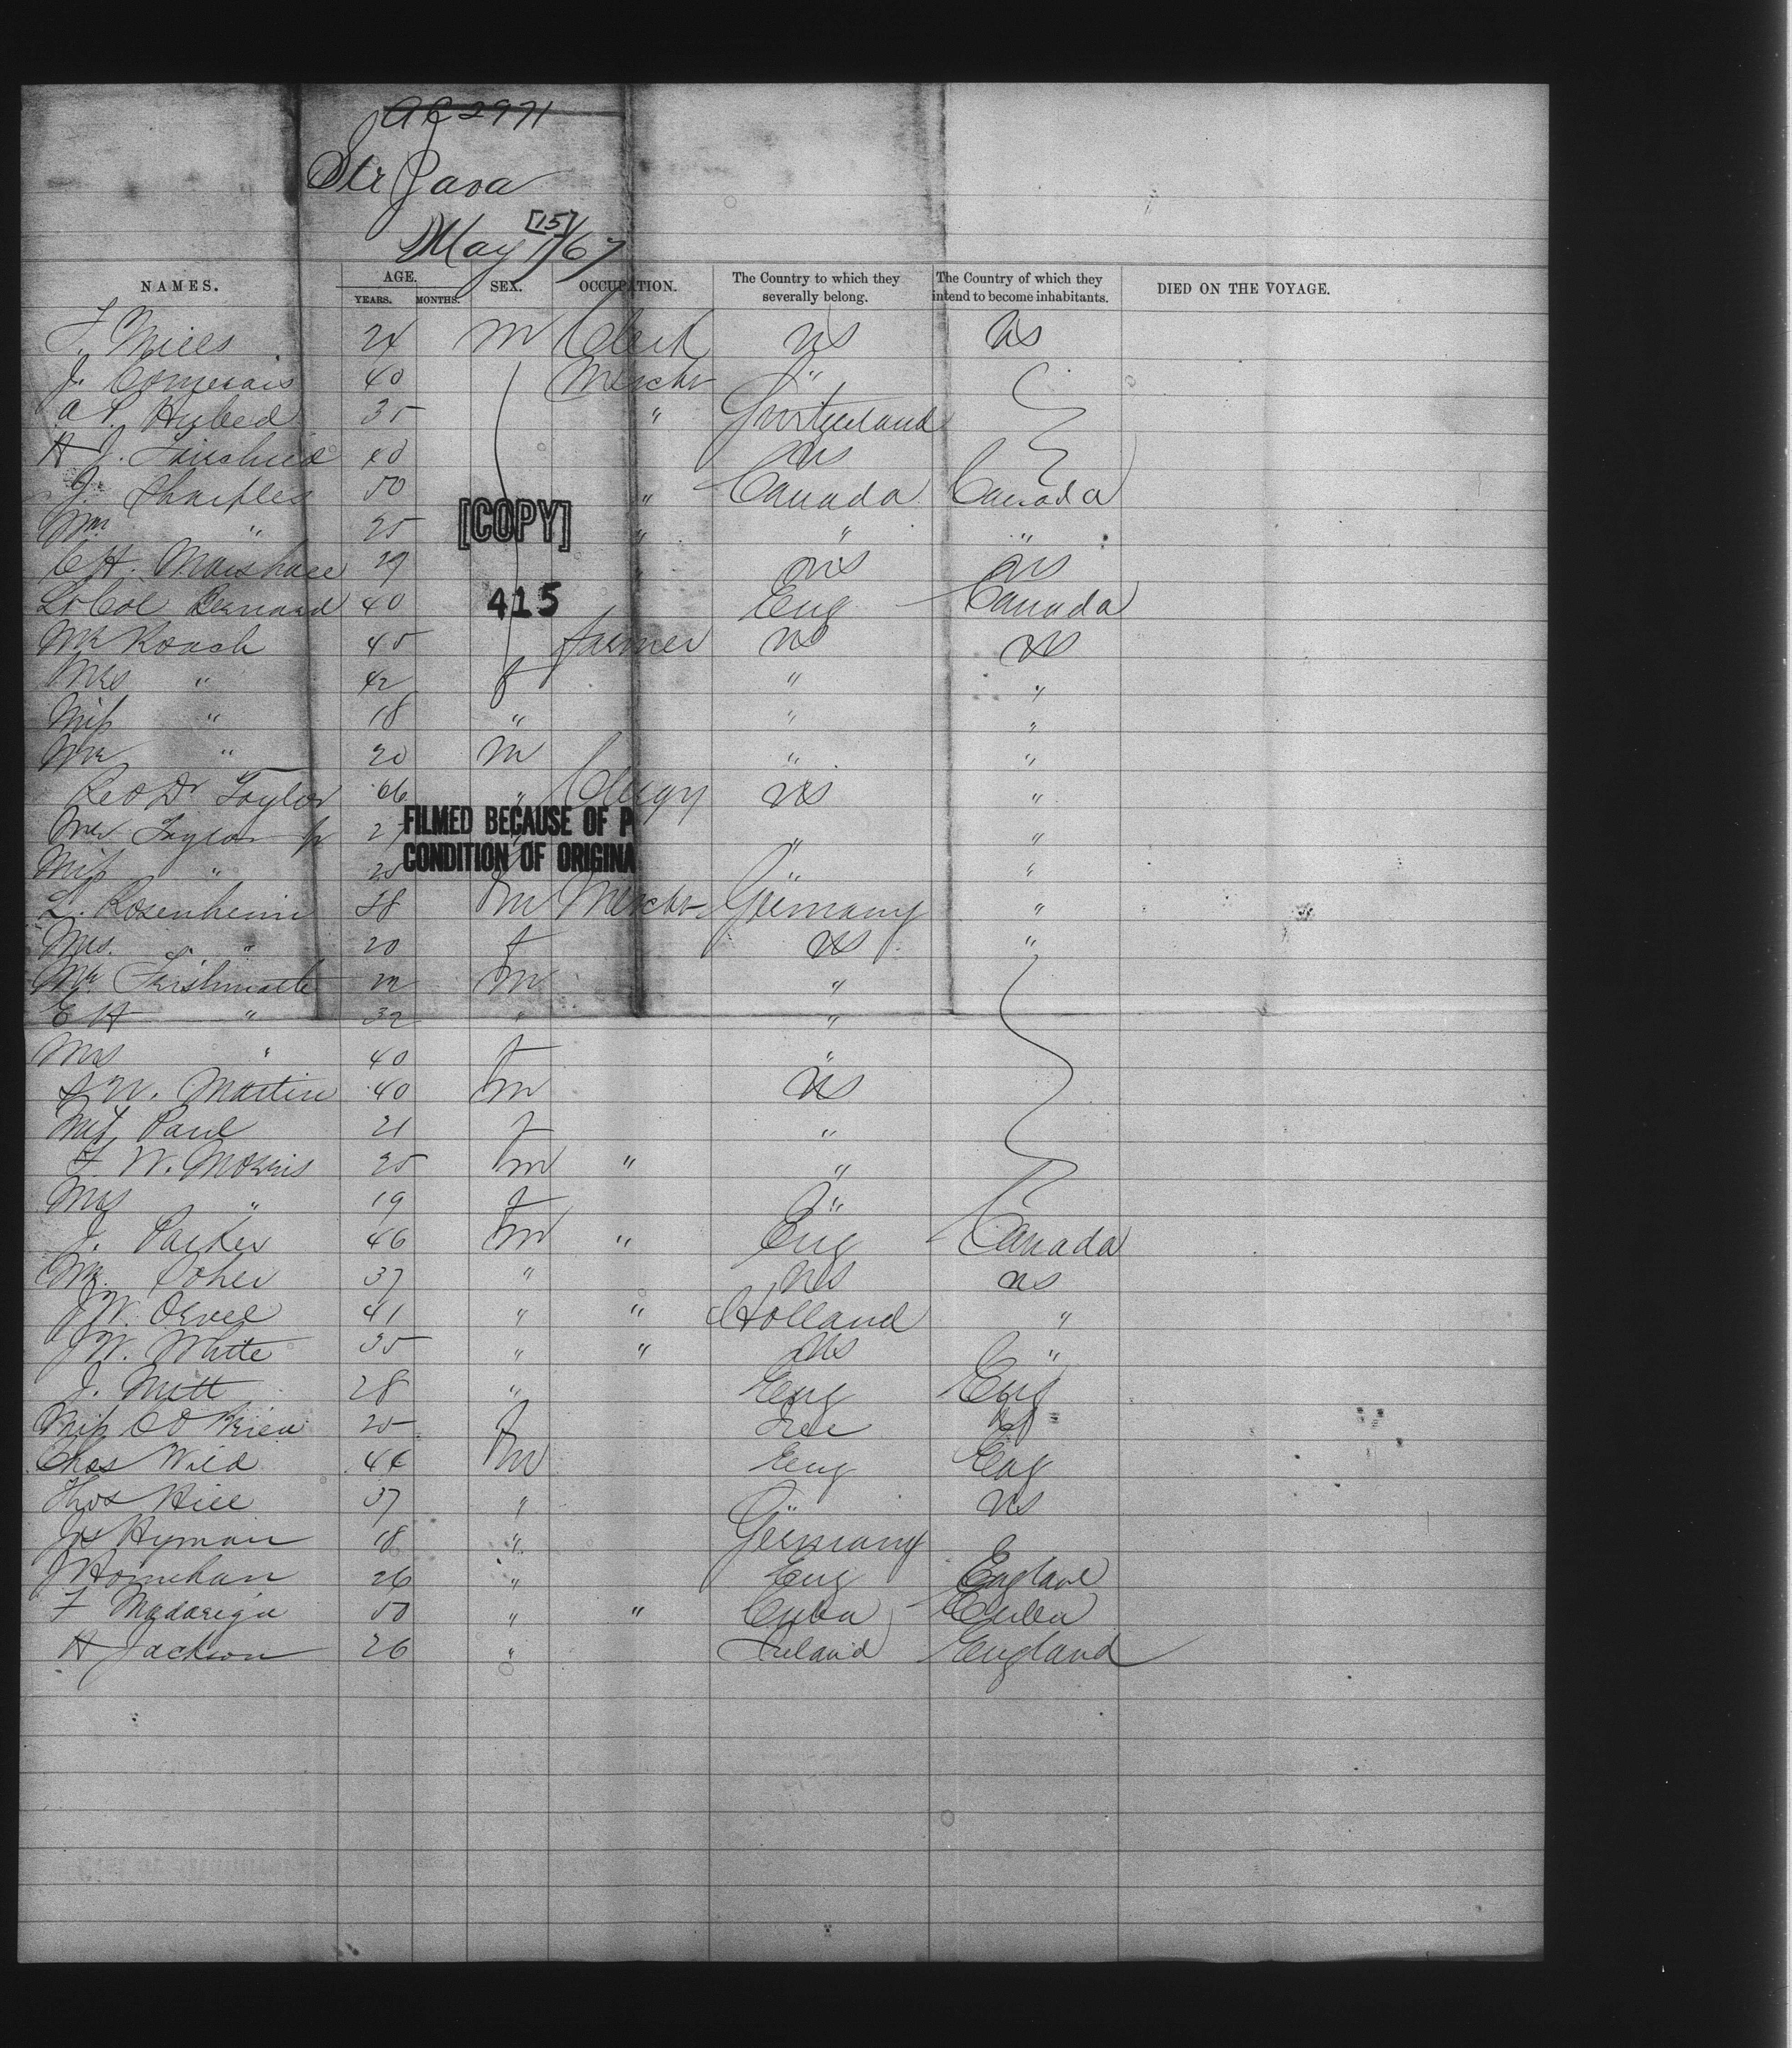 AR 2971
Str Java
[15]
May 1/67
NAMES. AGE. YEARS. MONTHS. SEX. OCCUPATION. The Country to which they severally belong. The Country of which they intend to become inhabitants. DIED ON THE VOYAGE.
F. Mills 24 m Clerk US US
J. 40 Mercht "
A P. 35 " Switzerland
A J. 40 US
J. Sharples 50 " Canada Canada
Wm " 25 " " "
[COPY]
C H. Marshall 29 " US US
Lt Col Bernard 40 Eng Canada
415
Mr Roach 45 farmer US US
Mrs " 42 f " "
Miss " 18 " " "
Mr " 20 m " "
Rev Dr Taylor 66 " Clergy US "
FILMED BECAUSE OF P
Mr Taylor Jr 27 " "
CONDITION OF ORIGINA
Miss " " "
L. Rosenheim 38 m Mercht Germany "
Mrs. " 20 f US "
Mr. m "
E H " 32 " "
Mrs " 40 f "
W. Martin 40 m US
Miss Paul 21 f "
F W. Morris 25 m " "
Mrs " 19 f "
J. Parker 46 m " Eng Canada
Mr. 37 " US US
J W. 41 " " Holland "
J W. White 35 " " US "
J. 28 " Eng Eng
Miss O Brien 25 f Ire "
Chas Wild 44 m Eng Eng
Thos Hill 37 " " US
Jos Hyman 18 " Germany
J 26 " Eng England
F Madariga 50 " " Cuba Cuba
A Jackson 26 " Ireland England